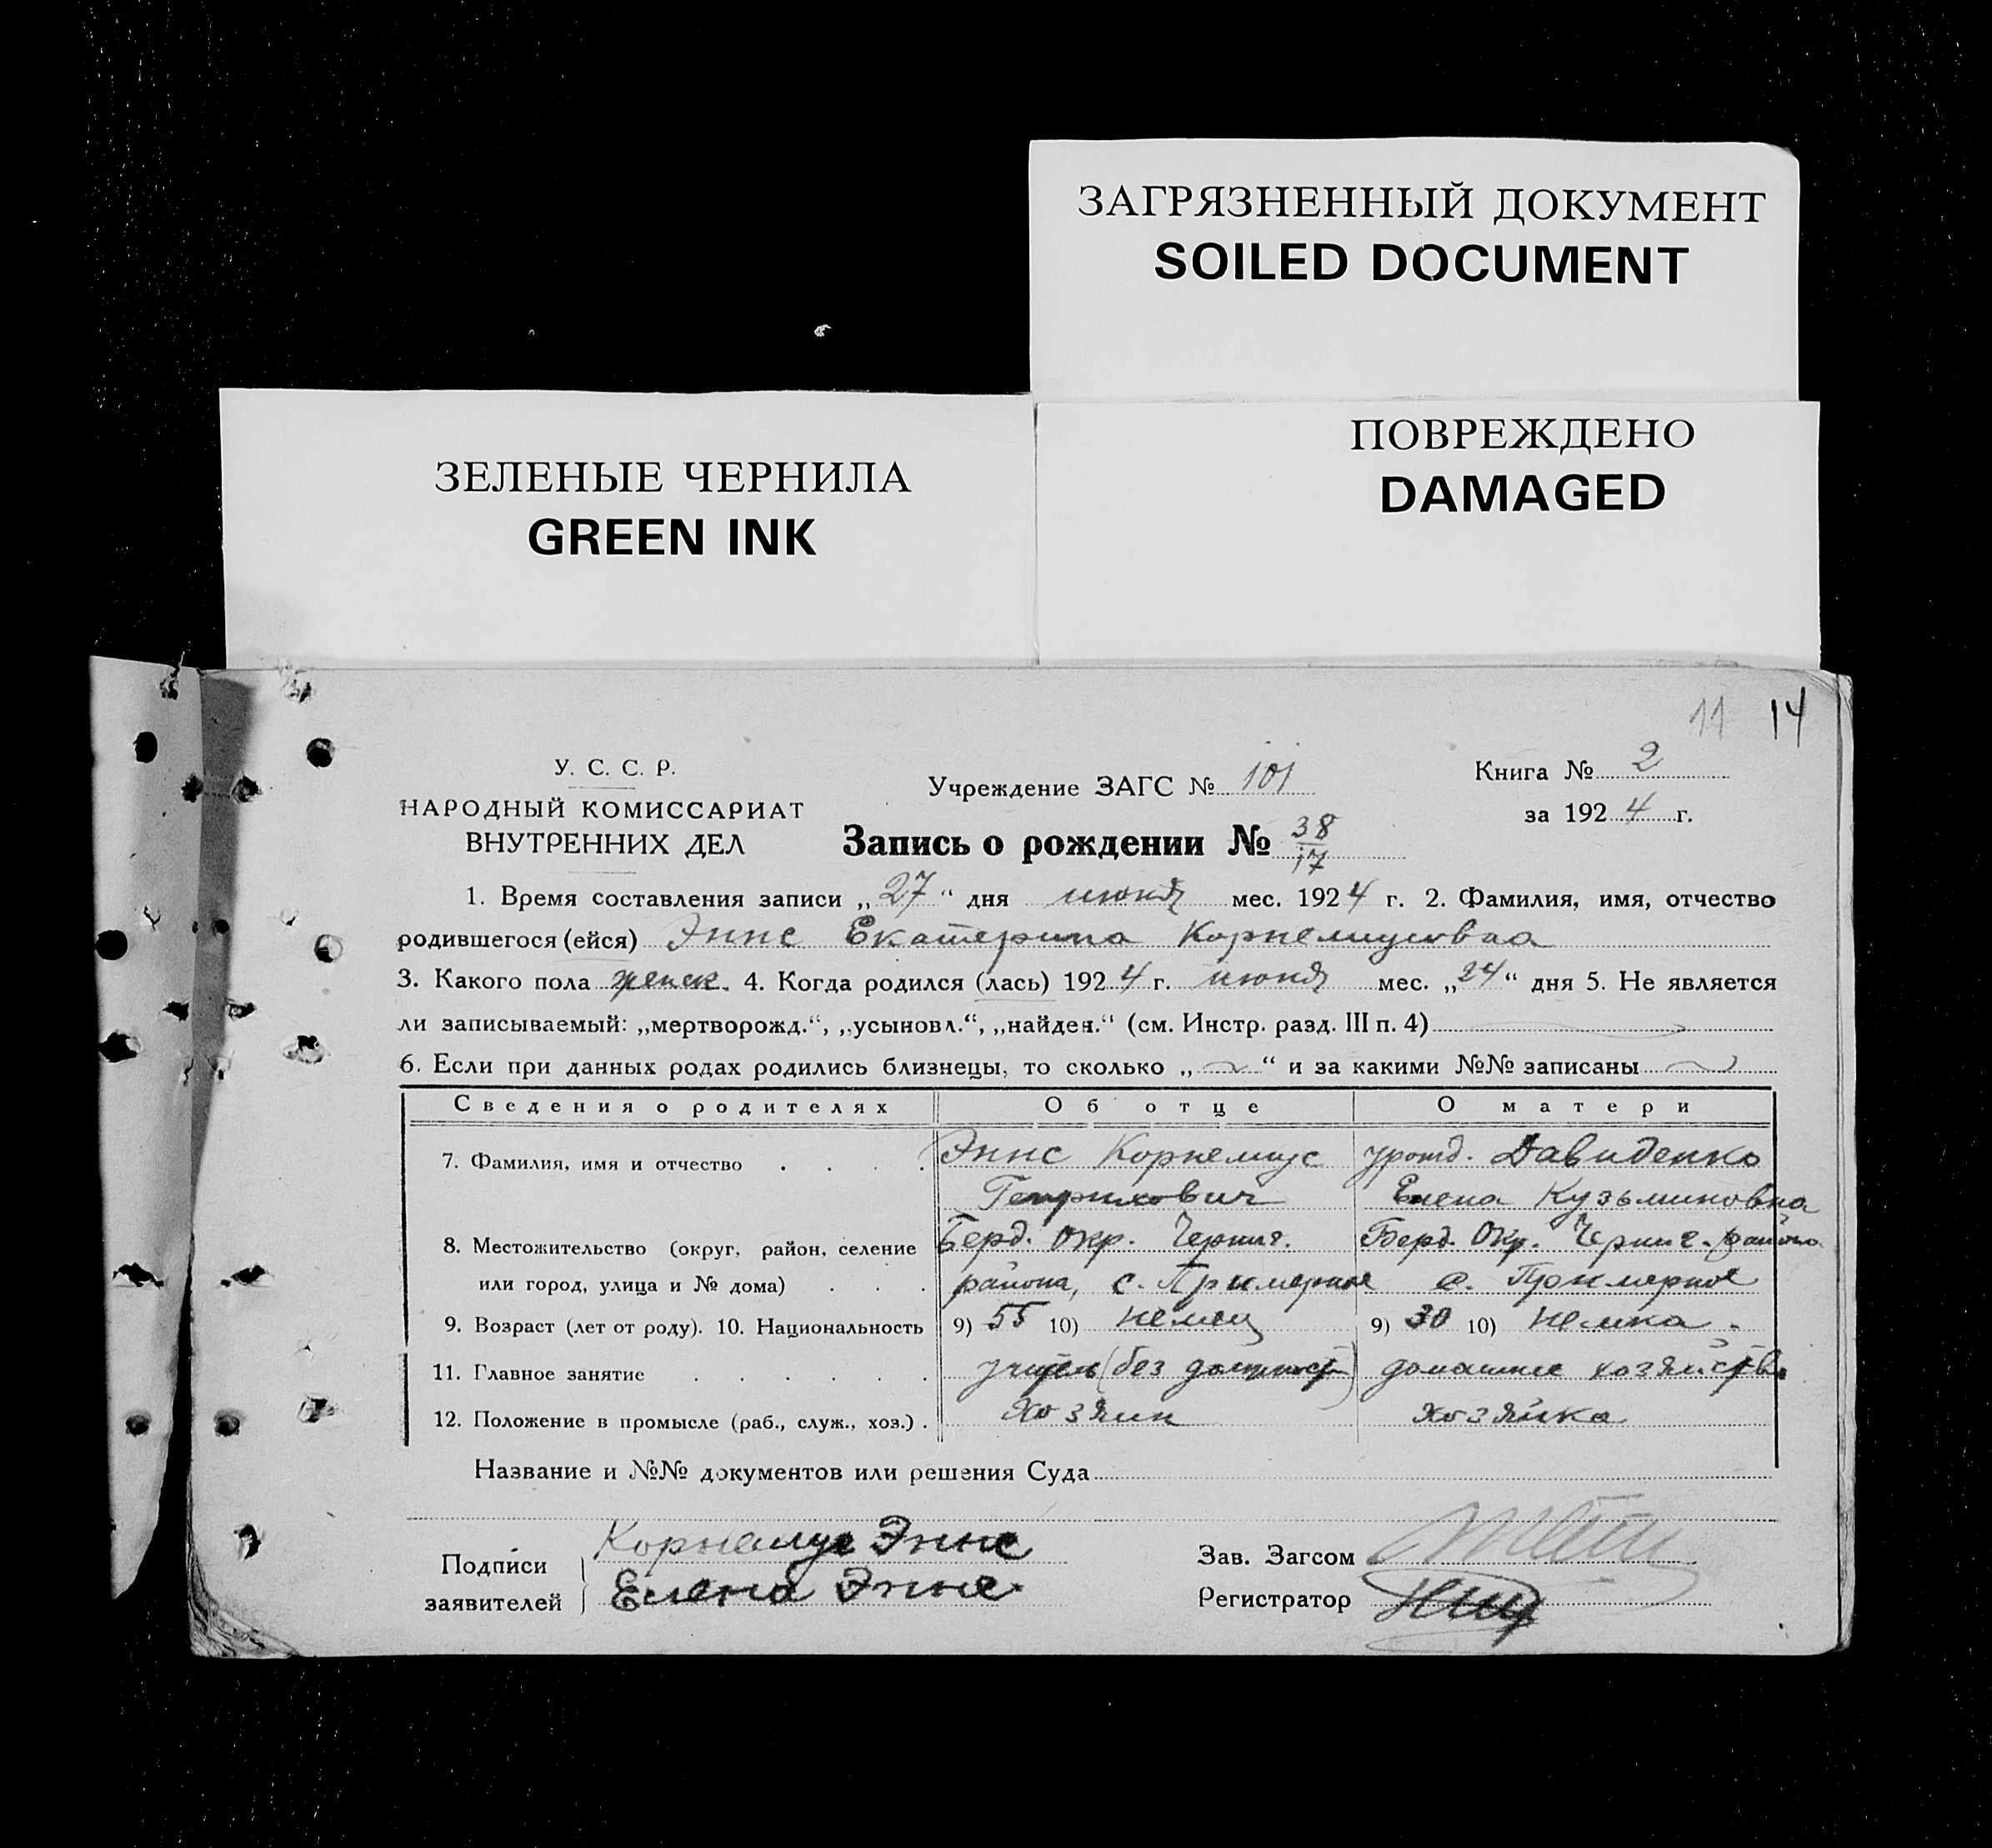 ЗАГРЯЗНЕННЫЙ ДОКУМЕНТ
SOILED DOCUMENT
ПОВРЕЖДЕНО
DAMAGED
ЗЕЛЕНЫЕ ЧЕРНИЛА
GREEN INK
11 14
У. С. С. Р.
НАРОДНЫЙ КОМИССАРИАТ
ВНУТРЕННИХ ДЕЛ
Учреждение ЗАГС № 101
Книга № 2
за 1924 г.
Запись о рождении № 38/17
1. Время составления записи „27“ дня июня мес. 1924 г. 2. Фамилия, имя, отчество
родившегося (ейся) Эннс Екатерина Корнелиусовна
3. Какого пола женск. 4. Когда родился (лась) 1924 г. июня мес. „24“ дня 5. Не является
ли записываемый: „мертворожд.“, „усыновл.“, „найден.“ (см. Инстр. разд. III п. 4)
6. Если при данных родах родились близнецы, то сколько „ “ и за какими №№ записаны
Сведения о родителях Об отце О матери
7. Фамилия, имя и отчество . . . . Эннс Корнелиус урожд. Давиденко
Генрихович Елена Кузьминовна
8. Местожительство (округ, район, селение Берд. Окр. Черниг. Берд. Окр. Черниг. района
или город, улица и № дома) . . . района, с. Примерное с. Примерное
9. Возраст (лет от роду). 10. Национальность 9) 55 10) немец 9) 30 10) немка
11. Главное занятие . . . . . . учитель (без должност) домашнее хозяйство
12. Положение в промысле (раб., служ., хоз.) . Хозяин хозяйка
Название и №№ документов или решения Суда
Подписи
заявителей
Корнелиус Эннс
Елена Эннс
Зав. Загсом
Регистратор